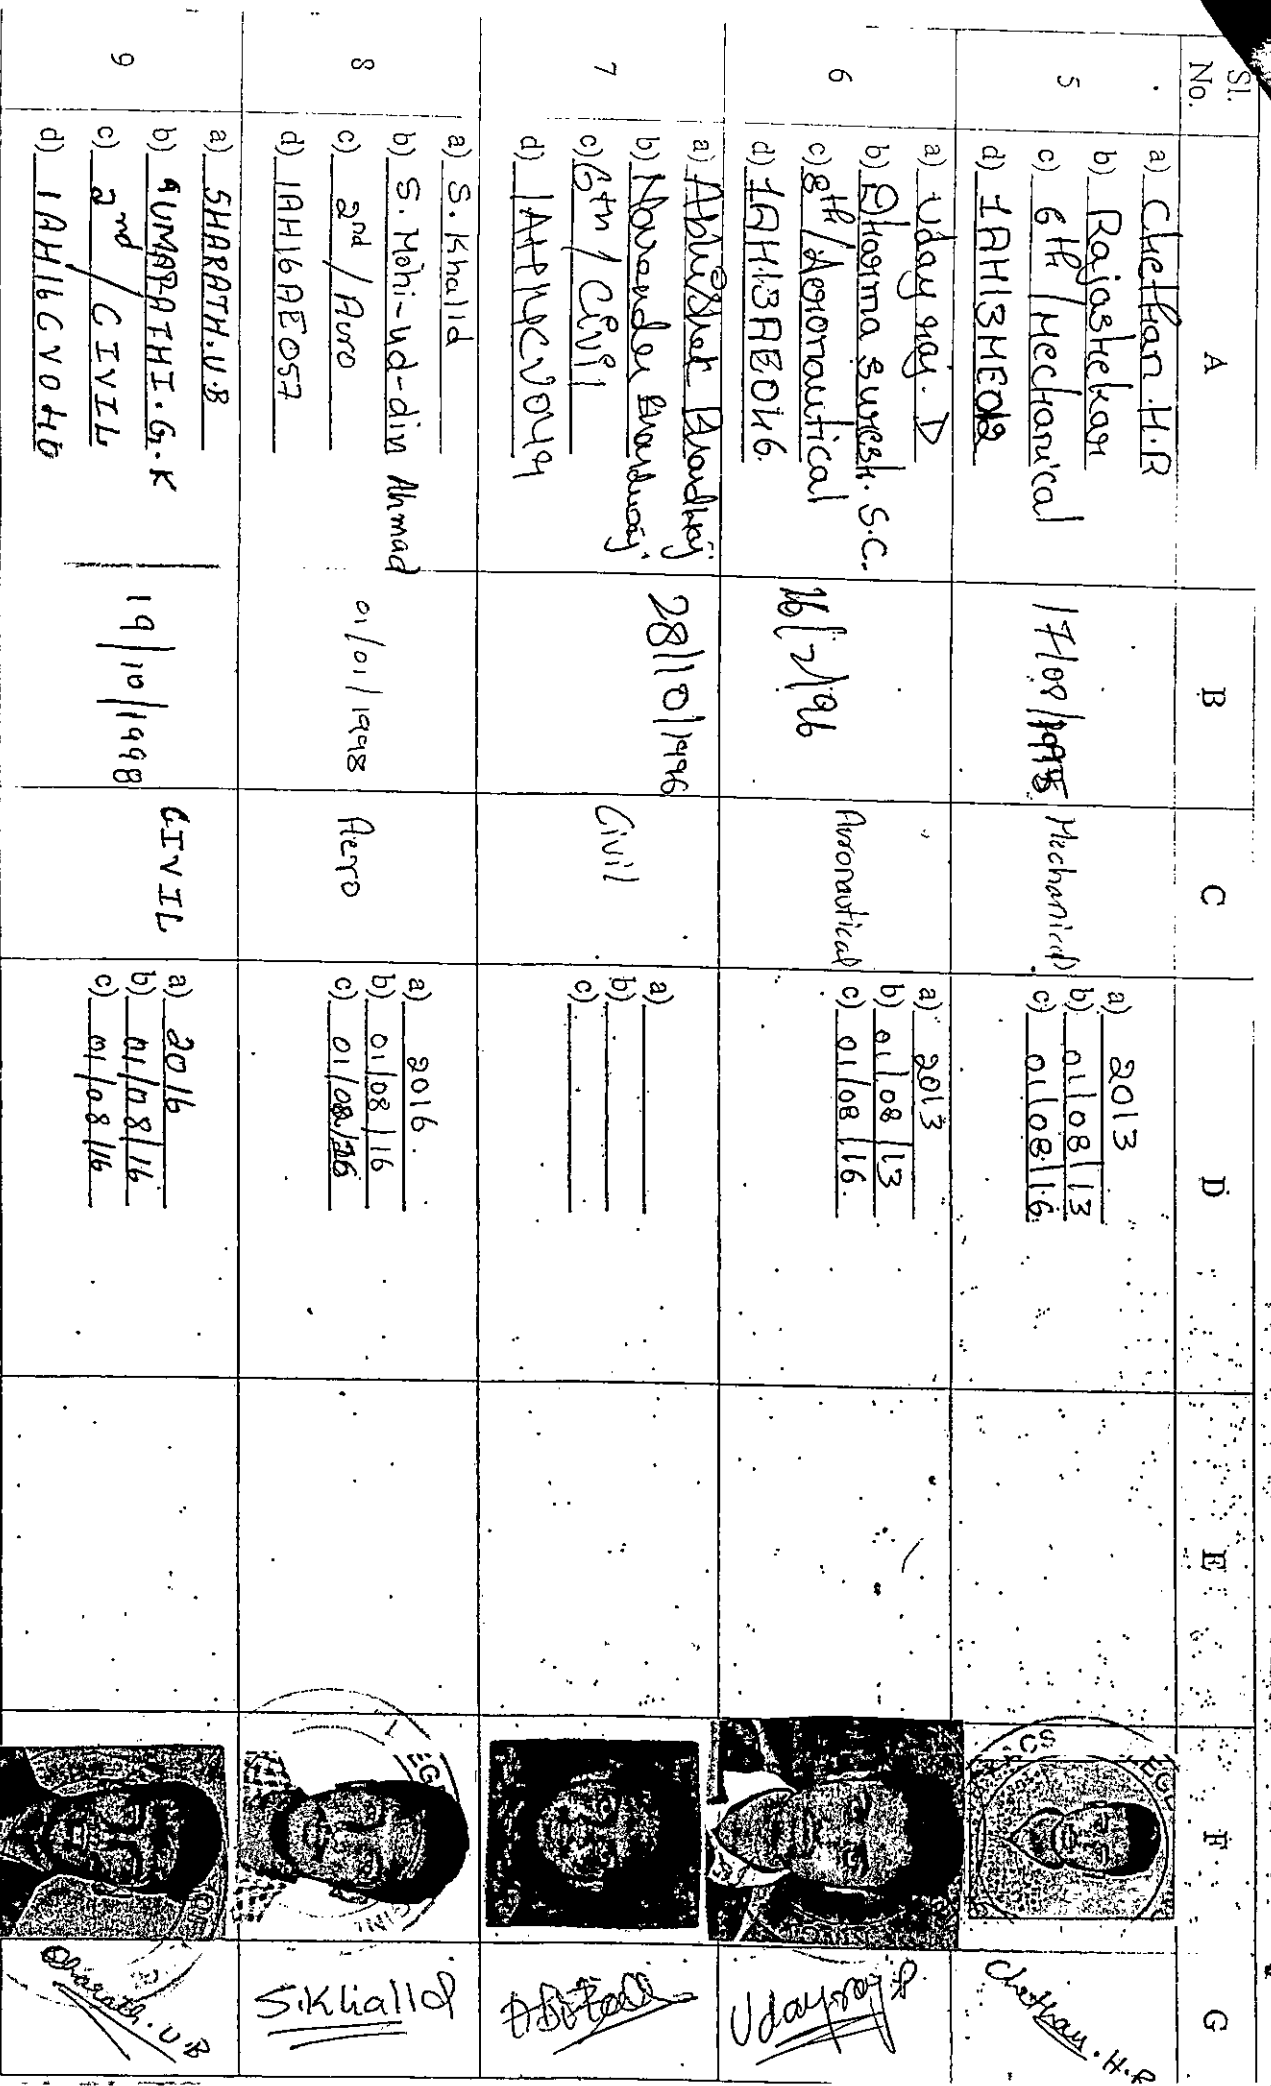 Sl. No. A B C D E F G
5
a) Chethan.H.R
b) Rajashekar
c) 6th/Mechanical
d) 1AH13ME012
17/08/1995
Mechanical
a) 2013
b) 01/08/13
c) 01/08/16
Chethan.H.R
6
a) Uday raj. D
b) Dharma Suresh. S.C.
c) 8th/Aeronautical
d) 1AH13AE046
16/2/96
Aeronautical
a) 2013
b) 01/08/13
c) 01/08/16.
Udayraj.D
7
a) Abhishek Bhardwaj
b) Narander Bhardwaj
c) 6th/Civil
d) 1AH14CV049
28/10/1996
Civil
a)
b)
c)
8
a) S.Khalid
b) S. Mohi-ud-din Ahmad
c) 2nd/Aero
d) 1AH16AE057
01/01/1998
Aero
a) 2016.
b) 01/08/16
c) 01/08/16
S.Khalid
9
a) SHARATH.U.B
b) UMAPATHI.G.K
c) 2nd/CIVIL
d) 1AH16CV040
19/10/1998
CIVIL
a) 2016
b) 01/08/16
c) 01/08/16
Sharath.U.B